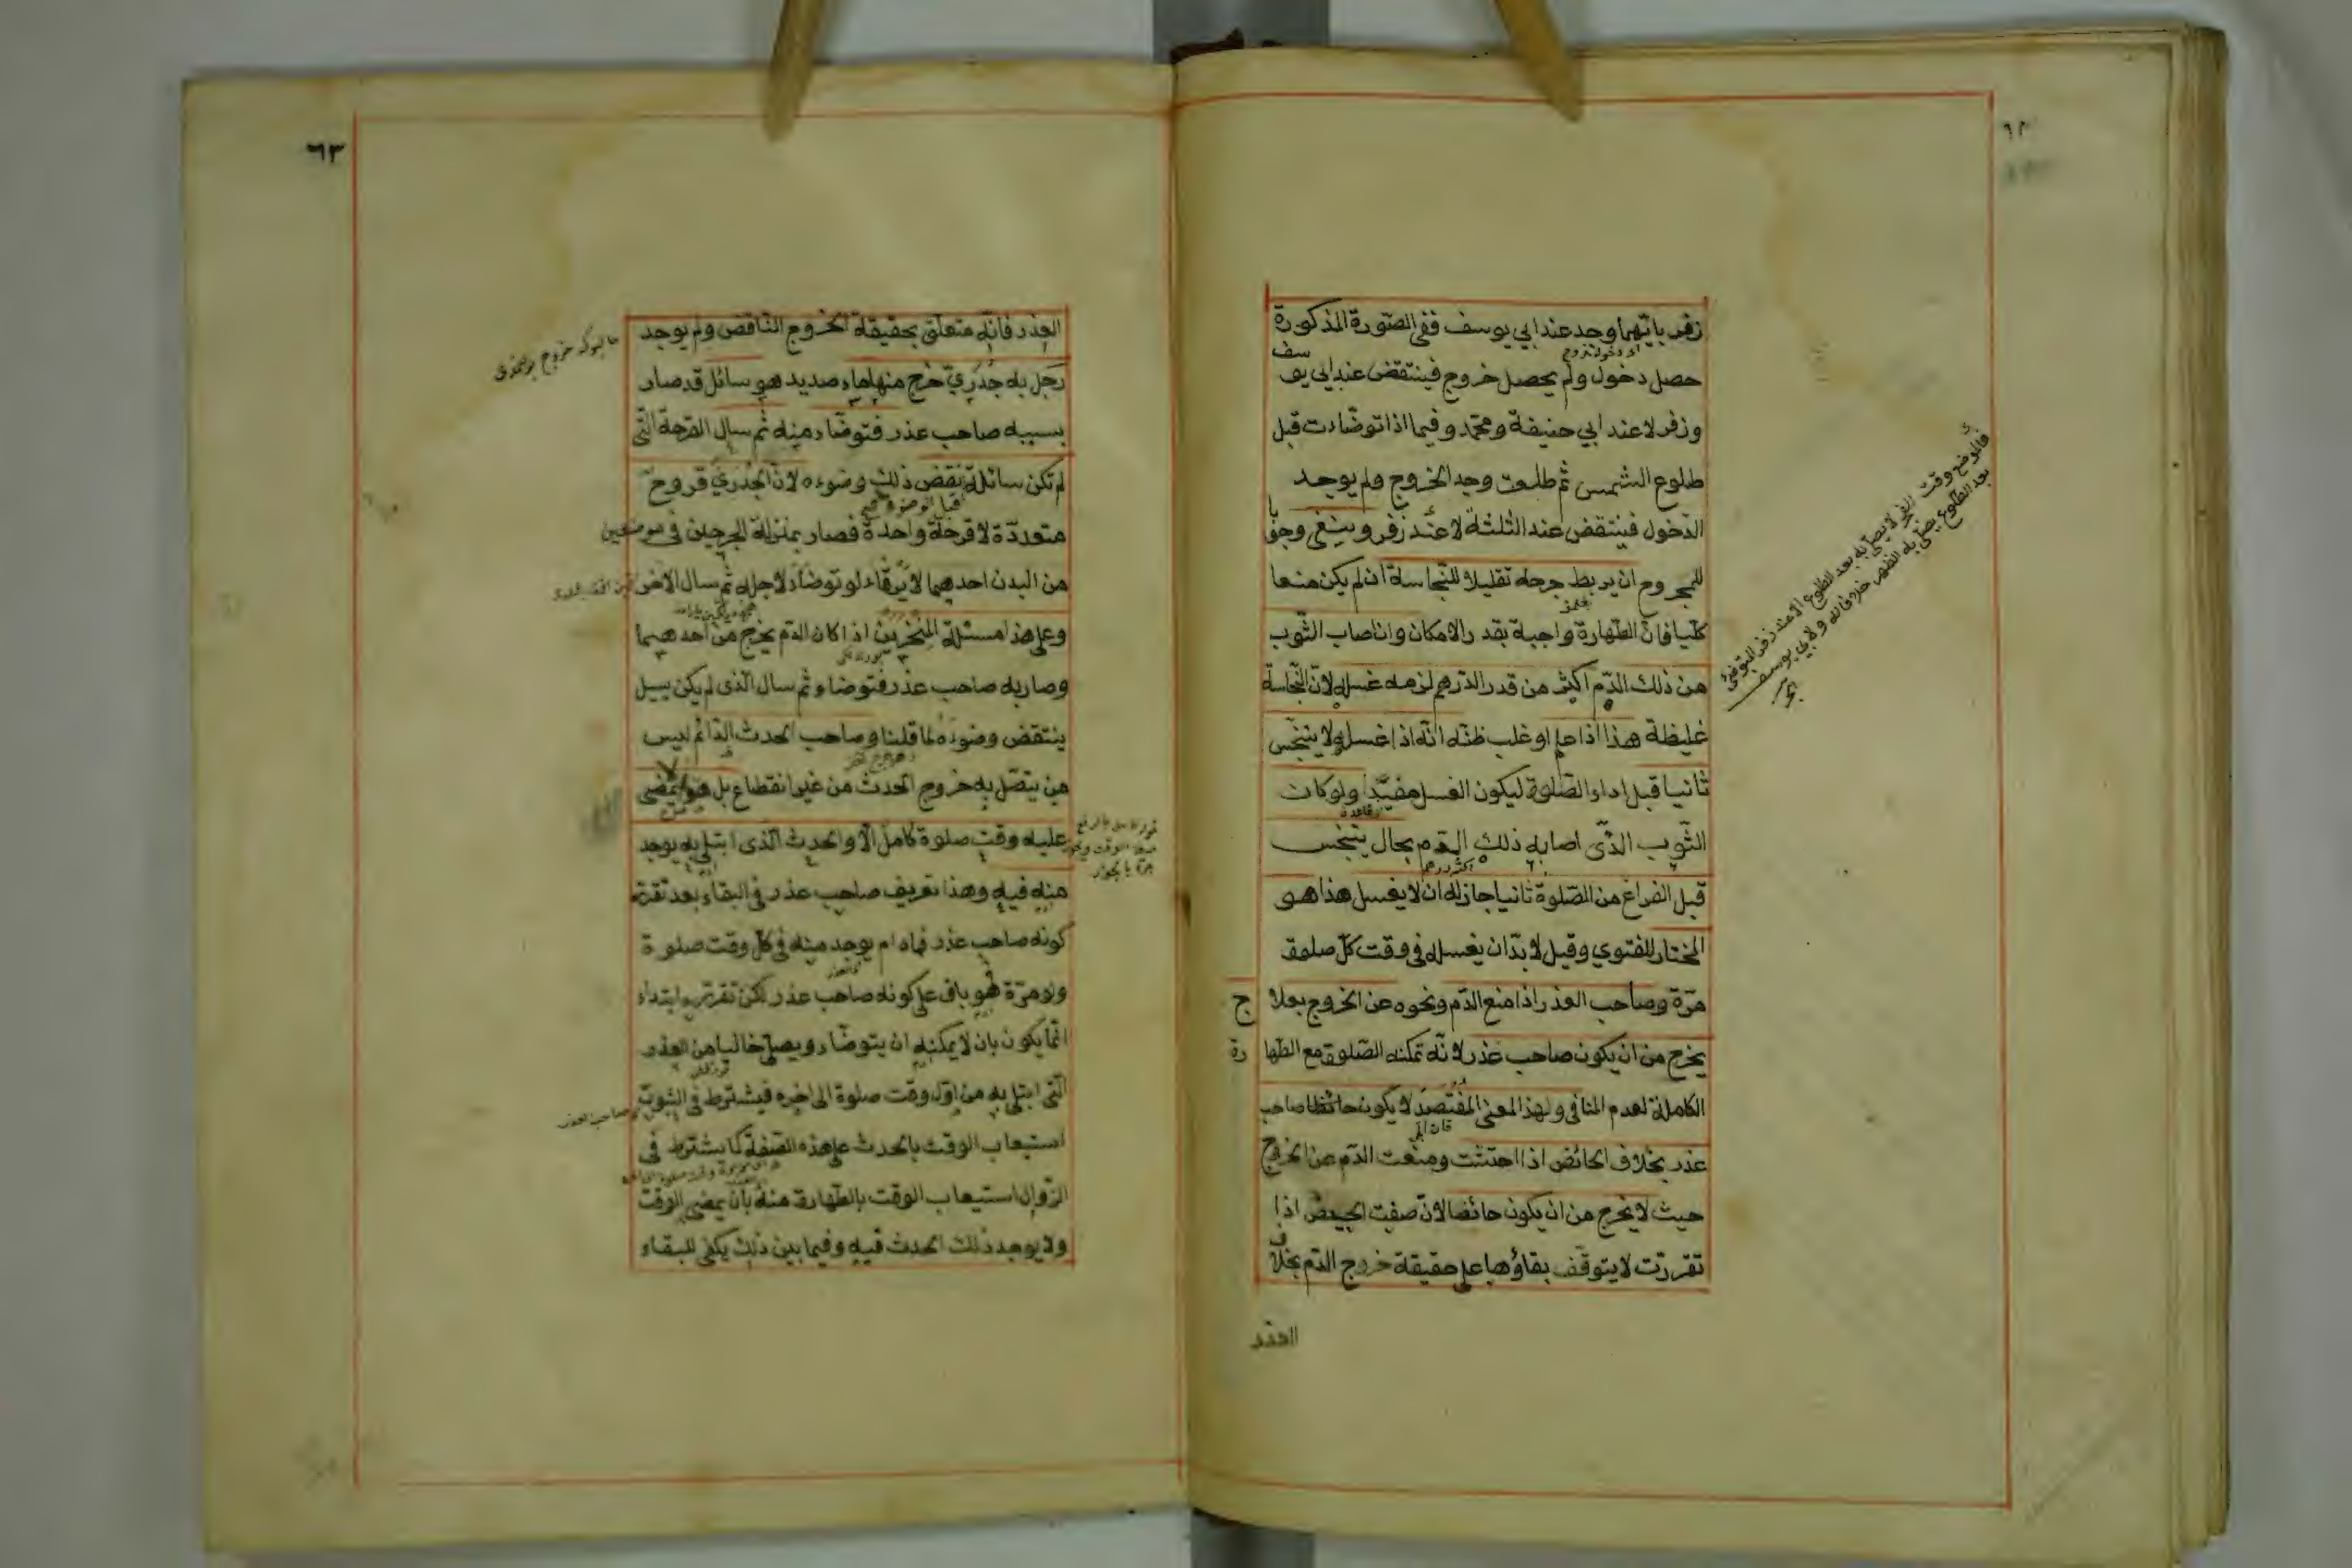 ٦٢
زفر بايّهما وجد عند ابي يوسف ففى الصّورة المذكورة
حصل دخول ولم يحصل خروج فينتقض عند ابى يوسف
وزفر لا عند ابي حنيفة ومحمّد وفيما اذا توضّاءت قبل
طلوع الشمس ثم طلعت وجد الخروج ولم يوجد
الدّخول فينتقض عند الثلثة لا عند زفر وينبغى وجوبا
للمجروح ان يربط جرحه تقليلا للنّجاسة ان لم يكن منعها
كلّيا فانّ الطّهارة واجبة بقدر الامكان وان اصاب الثّوب
من ذلك الدّم اكثر من قدر الدّرهم لزمه غسله لانّ النّجاسة
غليظة هذا اذا علم او غلب ظنّه انّه اذا غسله لا يتنجّس
ثانيا قبل اداء الصّلوة ليكون الغسل مفيدا ولو كان
الثّوب الذّى اصابه ذلك الدّم بحال يتنجّس
قبل الفراغ من الصّلوة ثانيا جاز له ان لا يغسل هذا هو
المختار للفتوي وقيل لا بدّ ان يغسله فى وقت كلّ صلوة
مرّة وصاحب العذر اذا منع الدّم ونحوه عن الخروج بعلاج
يخرج من ان يكون صاحب عذر لانّه تمكنه الصّلوة مع الطّهارة
الكاملة لعدم المنافى ولهذا المعنى المفتصد لا يكون صاحب
عذر بخلاف الحائض اذا احتشت ومنعت الدّم عن الخروج
حيث لا يخرج من ان يكون حائضا لانّ صفت الحيض اذا
تقرّرت لا يتوقّف بقاؤها على حقيقة خروج الدّم بخلاف
العذر
٦٣
العذر فانّه متعلّق بحقيقة الخروج النّاقض ولم يوجد
رجل به جدريّ خرج منها ماء صديد هو سائل قد صار
بسببه صاحب عذر فتوضّاء منه ثم سال القرحة الّتى
لم تكن سائلة نقض ذلك وضوءه لانّ الجدريّ قروح
متعدّدة لا قرحة واحدة فصار بمنزلة الجرحين فى موضعين
من البدن احدهما لا يرقاء لو توضّاء لاجله ثم سال الاخر
وعلى هذا مسئلة المنخرين اذا كان الدّم يخرج من احدهما
وصار به صاحب عذر فتوضاء ثم سال الّذى لم يكن يسيل
ينتقض وضوءه لما قلنا وصاحب الحدث الدّائم ليس
من يتّصل به خروج الحدث من غير انقطاع بل هو لا يمضى
عليه وقت صلوة كامل الّا والحدث الّذى ابتلى به يوجد
منه فيه وهذا تعريف صاحب عذر فى البقاء بعد تقرّر
كونه صاحب عذر فمادام يوجد منه فى كلّ وقت صلوة
ولو مرّة فهو باق على كونه صاحب عذر لكن تقرّره ابتداء
انّما يكون بان لا يمكنه ان يتوضّاء ويصلّى خاليا من العذر
الّتى ابتلى به من اوّل وقت صلوة الى اخره فيشترط فى الثبوت
استيعاب الوقت بالحدث على هذه الصّفة كما يشترط فى
الزّوال استيعاب الوقت بالطّهارة منه بان يمضى الوقت
ولا يوجد ذلك الحدث فيه وفيما بين ذلك يكفى للبقاء